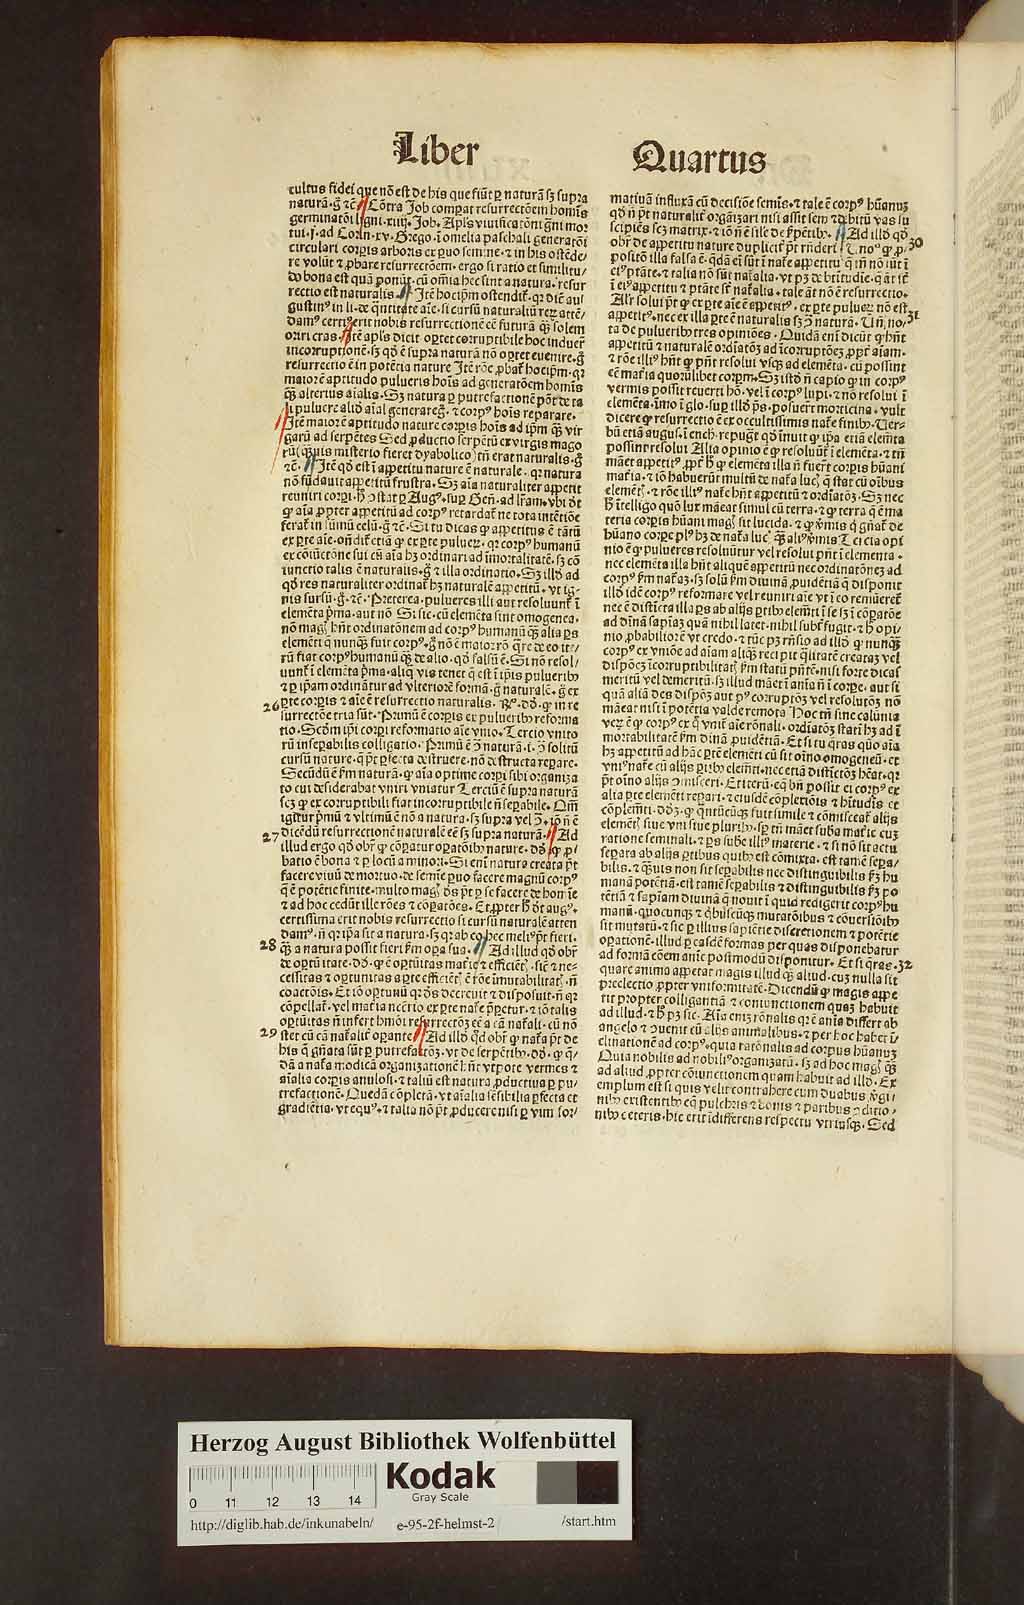 Liber
Quartus
cultus fidei que nō est de his que fiūt ꝑ naturā sꝫ supra
naturā. g̃ ⁊c̄ Cōtra Job comparat resurrectōem hominis
germinatōi ligni. xiiij. Job. Apl's viuificatōni gni mor
tui. j. ad Corin. xv. Grego. ī omelia paschali generatōi
circulari corꝑis arboris ex puo semine. ⁊ in his ostēde/
re volūt ⁊ ꝓbare resurrectōem. ergo si ratio et similitu/
do bona est quā ponūt. cū om̄ia hec sint a natura. resur
rectio est naturalis. Itē hoc ip̄m ostendit'. qꝛ dic̄ au/
gustin⁹ in li. de q̄ntitate aīe. si cursū naturaliū reꝝ attē/
dam⁹ certi⁹ erit nobis resurrectionē eē futurā qꝫ solem
oriri cras. Itē apl's dicit. oꝑtet corruptibile hoc induer̄
incorruptionē. sꝫ qd̄ ē supra naturā nō oꝑtet euenire. g̃
resurrectio ē in potētia nature Itē rōe ꝓbat' hoc ip̄m. qꝛ
maior ē aptitudo pulueris hoīs ad generatōem hominis
qꝫ alterius aīalis. Sꝫ natura ꝑ putrefactionē pōt de ta
li puluere aliō aīal generare g̃. ⁊ corp⁹ hoīs reparare.
Itē maior ē aptitudo nature corꝑis hoīs ad ip̄m qꝫ vir
garū ad serpētes Sed ꝓductio serpētū ex virgis mago
rū (qꝫuis misterio fieret dyabolico) tn̄ erat naturalis. g̃
⁊c̄. Itē qd̄ est ī appetitu nature ē naturale. qꝛ natura
nō fūdauit appetitū frustra. Sꝫ aīa naturaliter appetit
reuniri corꝑi. h̄ ɔstat ꝑ Aug⁹. sup Gen̄. ad lr̄am. vbi dt̄
ꝙ aīa ꝓpter appetitū ad corp⁹ retardat' ne tota intētiōe
ferat' in sūmū celū. g̃ ⁊c̄. Si tu dicas ꝙ appetitus ē tātū
ex ꝑte aīe. oñdit' etiā ꝙ ex ꝑte pulueꝝ. qꝛ corp⁹ humanū
ex cōiūctōne sui cū aīa hꝫ ordinari ad īmortalitatē. sꝫ cō
iunctio talis ē naturalis. g̃ ⁊ illa ordinatio. Sꝫ illd̄ ad
qd̄ res naturaliter ordinat' hꝫ naturalē appetitū. vt ig/
nis sursū. g̃. ⁊c̄. Preterea. pulueres illi aut resoluunt' ī
elemēta p̄ma. aut nō. Si sic. cū elemēta sint omogenea.
nō mag̃ hn̄t ordinatōnem ad corp⁹ humanū qꝫ alia ꝑs
elemēti q̄ nunqꝫ fuit corp⁹. g̃ nō ē maior rō q̄re de eo ite/
rū fiat corp⁹ humanū qꝫ de alio. qd̄ falsū ē. Si nō resol/
uunt' ī elemēta p̄ma. aliq̄ vis tenet q̄ est ī ip̄is pulueribꝫ
⁊ ꝑ ip̄am ordināt̄ur ad vlteriorē formā. g̃ naturale. g̃ ex
26 ꝑte corꝑis ⁊ aīe ē resurrectio naturalis. Rº. dd̄. ꝙ in re
surrectōe tria sūt. Primū ē corꝑis ex pulueribꝫ reforma
tio. Scd̄m ip̄i corꝑi reformatio aīe vnio. Tercio vnito
rū inseꝑabilis colligatio. Primū ē ɔ naturā. i. ɔ solitū
cursū nature. q̄ pt̄ ꝑfecta destruere. nō destructa reꝑare.
Secūdū ē p̄m naturā. ꝙ aīa optime corꝑi sibi organiza
to cui desiderabat vniri vniatur Terciū ē supra naturā
scꝫ ꝙ ex corruptibili fiat incorruptibile n̄ seꝑabile. Qm̄
igit̄ur p̄mū ⁊ vltimū ē nō a natura. sꝫ supra vel ɔ. iō n̄ ē
27 dicēdū resurrectionē naturalē eē sꝫ supra naturā. Ad
illud ergo qd̄ obr̄ ꝙ cōꝑatur oꝑatōibꝫ nature. dd̄. ꝙ ꝓ/
batio ē bona ⁊ ꝑ locū a minori. Si enī natura creata pt̄
facere viuū de mortuo. de semīe paruo facere magnū corp⁹
q̄ ē potētie finite. multo mag̃ dꝭ pt̄ ꝑ se facere de homīe
⁊ ad hoc cedūt ille rōes ⁊ cōꝑatōes. Et ꝓpter h̄ dt̄ aug⁹.
certissima erit nobis resurrectio si cursū naturalē atten
dam⁹. n̄ qꝛ ip̄a sit a natura. sꝫ qꝛ ab eo hec meli⁹ pt̄ fieri.
28 qꝫ a natura possit fieri p̄m oꝑa sua. Ad illud qd̄ obr̄
de oꝑtūitate. dd̄. ꝙ ē oꝑtūitas mat'ie ⁊ efficiēt̄. sic̄ ⁊ ne/
cessitas ⁊ oportunitas a ꝑte efficiēt̄ ē rōe īmutabilitat̄. n̄
coactōis. Et iō oꝑtunū qꝛ dꝭ decreuit ⁊ disposuit. n̄ qꝛ
cōpellat'. vel mat'ia nec̄rio ex ꝑte nat'e ꝑꝑetur. ⁊ iō talis
oꝑtūitas n̄ infert hmōi resurrectōꝫ eē a cā nat'ali. cū nō
29 ster cū cā nat'alit' oꝑante. Ad illd̄ qd̄ obr̄ ꝙ nat'a pt̄ de
his q̄ gn̄ata sūt ꝑ putrefactōꝫ. vt de serpētibꝫ. dd̄. ꝙ q̄/
dā a nat'a modicā organizationē hn̄t vtpote vermes ⁊
aīalia corꝑis anulosi. ⁊ taliū est natura ꝓductiua ꝑ pu/
trefactionē. Quedā cōpletā. vt aīalia sēsibilia ꝑfecta et
gradiētia. vt equ⁹. ⁊ talia nō pt̄ ꝓducere nisi ꝑ vim for/
matiuā influxā cū decisiōe semis. ⁊ tale ē corp⁹ hūanuꝫ
qd̄ n̄ pt̄ naturalit' organizari nisi assit sem̄ ⁊ debitū vas su
scipiēs scꝫ matrix. ⁊ iō n̄ ē sil'e de serpētibꝫ. Ad illd̄ qd̄
obr̄ de appetitu nature duplicit' pt̄ rn̄deri. Uno⁰ ꝙ ꝓ. 30
positō illa falsa ē. qdā ei sūt ī nat'e appetitu q̄ in nō sūt ī
ei⁹ ptāte. ⁊ talia nō sūt nat'alia. vt pꝫ de btitudīe. q̄ at' st̄
ī ei⁹ appetitu ⁊ ptāte st̄ nat'alia. tale at' nō ē resurrectio.
Alr̄ soluit' pt̄ ꝙ ex ꝑte aīe ē appetit⁹. ex ꝑte pulueꝝ nō est
appetit⁹. nec ex illa ꝑte ē naturalis sꝫ ɔ naturā. Un̄. no/ 31
ta de pulueribꝫ tres opiniōes. Quidā eni dicūt ꝙ hn̄t
appetitū ⁊ naturalē ordīatōꝫ ad īcorruptōeꝫ ꝓpt' aīam.
⁊ rōe illi⁹ hn̄t ꝙ pn̄t resolui vsqꝫ ad elemēta. cū possint
eē mat'ia quorūlibet corꝑum. Sꝫ istd̄ n̄ capio ꝙ in corp⁹
vermis possit reuerti hō. vel ī corp⁹ lupi. ⁊ nō resolui ī
elemēta. īmo ī glo. suꝑ illd̄ ps. posuerūt morticina. vult
dicere ꝙ resurrectio ē ex occultissimis nat'e sinibꝫ. Uer/
bū etiā augus. ī ench. repug̃t qd̄ īnuit ꝙ ip̄a etiā elem̄ta
possint resolui Alia opinio ē ꝙ resoluūt' ī elemēta. ⁊ tn̄
māet appetit⁹. ꝓpt' h̄ ꝙ elemēta illa n̄ fuer̄t corꝑis hūani
mat'ia. ⁊ iō habuerūt multū de nat'a luc̄ q̄ stat cū oībus
elemēt̄. ⁊ rōe illi⁹ nat'e hn̄t appetitū ⁊ ordīatōꝫ. Sꝫ nec
h̄ ītelligo quō lux māeat simul cū terra. ⁊ ꝙ terra q̄ ē ma
teria corꝑis hūani mag̃ sit lucida. ⁊ ꝙ v̄mis q̄ gn̄at' de
hūano corꝑe pl⁹ hꝫ de nat'a luc̄ qꝫ ali⁹ v̄mis Tercia opi
nio ē ꝙ pulueres resoluūtur vel resolui pn̄t ī elementa.
nec elemēta illa hn̄t aliquē appetitū nec ordinatōneꝫ ad
corp⁹ p̄m nat'aꝫ. sꝫ solū p̄m diuinā ꝓuidētiā q̄ disponit
illd̄ idē corp⁹ reformare vel reuniri aīe vt ī eo remūeret'
nec ē distīcta illa ꝑs ab alijs ꝑtibꝫ elem̄ti ī se sꝫ ī cōꝑatōe
ad dīnā sapīaꝫ quā nihil latet. nihil subt'fugit. ⁊ h̄ opi/
nio ꝓbabilior ē vt credo. ⁊ tūc pꝫ rn̄sio ad illd̄ ꝙ nunqꝫ
corp⁹ ex vniōe ad aīam aliqꝫ recipit q̄litatē creataꝫ vel
dispōeꝫ īcorruptibilitat̄ p̄m statū pn̄tē. nisi forte dicas
meritū vel demeritū. sꝫ illud māet ī aīa n̄ ī corꝑe. aut si
quā aliā des dispōꝫ aut p⁹ corruptōꝫ vel resolutōꝫ nō
māeat nisi ī potētia valde remota Hoc tn̄ sine calūnia
veꝝ ē ꝙ corp⁹ ex q̄ vnit' aīe rōnali. ordīatōꝫ stati hꝫ ad ī
mortalitatē p̄m dīnā ꝓuidētiā. Et si tu q̄ras quō aīa
hꝫ appetitū ad hāc ꝑtē elemēti cū sit oīno omogeneū. et
vni⁹ nat'e cū alijs ꝑtibꝫ elem̄ti. nec etiā distīctōꝫ hēat. qꝛ
pt̄ oīno alijs ɔmisceri. Et iterū. eqꝫ bn̄ possit ei corp⁹ ex
alia ꝑte elemēti reꝑari. ⁊ eiusdē cōplexiōis ⁊ hitudīs et
cōplem̄ti. dd̄ꝫ. ꝙ q̄ntūcūqꝫ fuit simile ⁊ cōmisceat' alijs
elemēt̄ siue vni siue pluribꝫ. sꝑ tn̄ māet sub mat'ie cuꝫ
ratione seminali. ⁊ ꝑs sube illi⁹ materie. ⁊ si nō sit actu
seꝑata ab alijs ꝑtibus quibꝫ est cōmixta. est tamē seꝑa/
bilis. ⁊ qꝫuis non sit seꝑabilis nec distinguibilis p̄m hu
manā potētiā. est tamē seꝑabilis ⁊ distinguibilis p̄m po
tētiā ⁊ sapīam diuinā q̄ nouit ī quid redigerit' corp⁹ hu
manū. quocunqꝫ ⁊ qbuscūqꝫ mutatōibus ⁊ cōuersiōibꝫ
sit mutatū. ⁊ sic ꝑ illius sapiētie discretionem ⁊ potētie
oꝑationē. illud ꝑ easdē formas per quas disponebatur
ad formā eōem anīe postmodū disponitur. Et si q̄ras. 32
quare anima appetat magis illud qꝫ aliud. cuꝫ nulla sit
preelectio ꝓpter vniformitatē. Dicendū ꝙ magis appe
tit propter colligantiā ⁊ coniunctionem quaꝫ habuit
ad illud. ⁊ h̄ pꝫ sic. Aīa enīꝫ rōnalis qꝛ ē aīa differt ab
angelo ⁊ ɔuenit cū alijs animalibus. ⁊ per hoc habet ī/
clinationē ad corp⁹. quia ratōnalis ad corpus hūanuꝫ
Quia nobilis ad nobili⁹ organizatū. sꝫ ad hoc mag̃ qꝫ
ad aliud ꝓpter cōiunctionem quam habuit ad illd̄. Ex
emplum est si quis velit contrahere cum duabus v̄gi/
nibꝫ existentibꝫ eq̄ pulchris ⁊ bonis ⁊ paribus ɔditio/
nibꝫ ceteris. hic erit īdifferens respectu vtriusqꝫ. Sed
Herzog August Bibliothek Wolfenbüttel
Kodak
Gray Scale
0 11 12 13 14
http://diglib.hab.de/inkunabeln/ e-95-2f-helmst-2 /start.htm